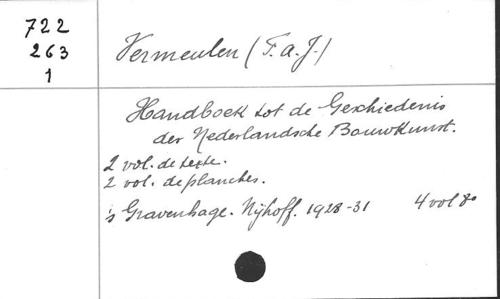 722
263
1
Vermeulen (F.a.J.)
Handboek tot de Geschiedenis
der Nederlandsche Bouwkunst.
2 vol. de texte.
2 vol. de planches.
's Gravenhage. Nijhoff. 1928-31 4 vol 8o